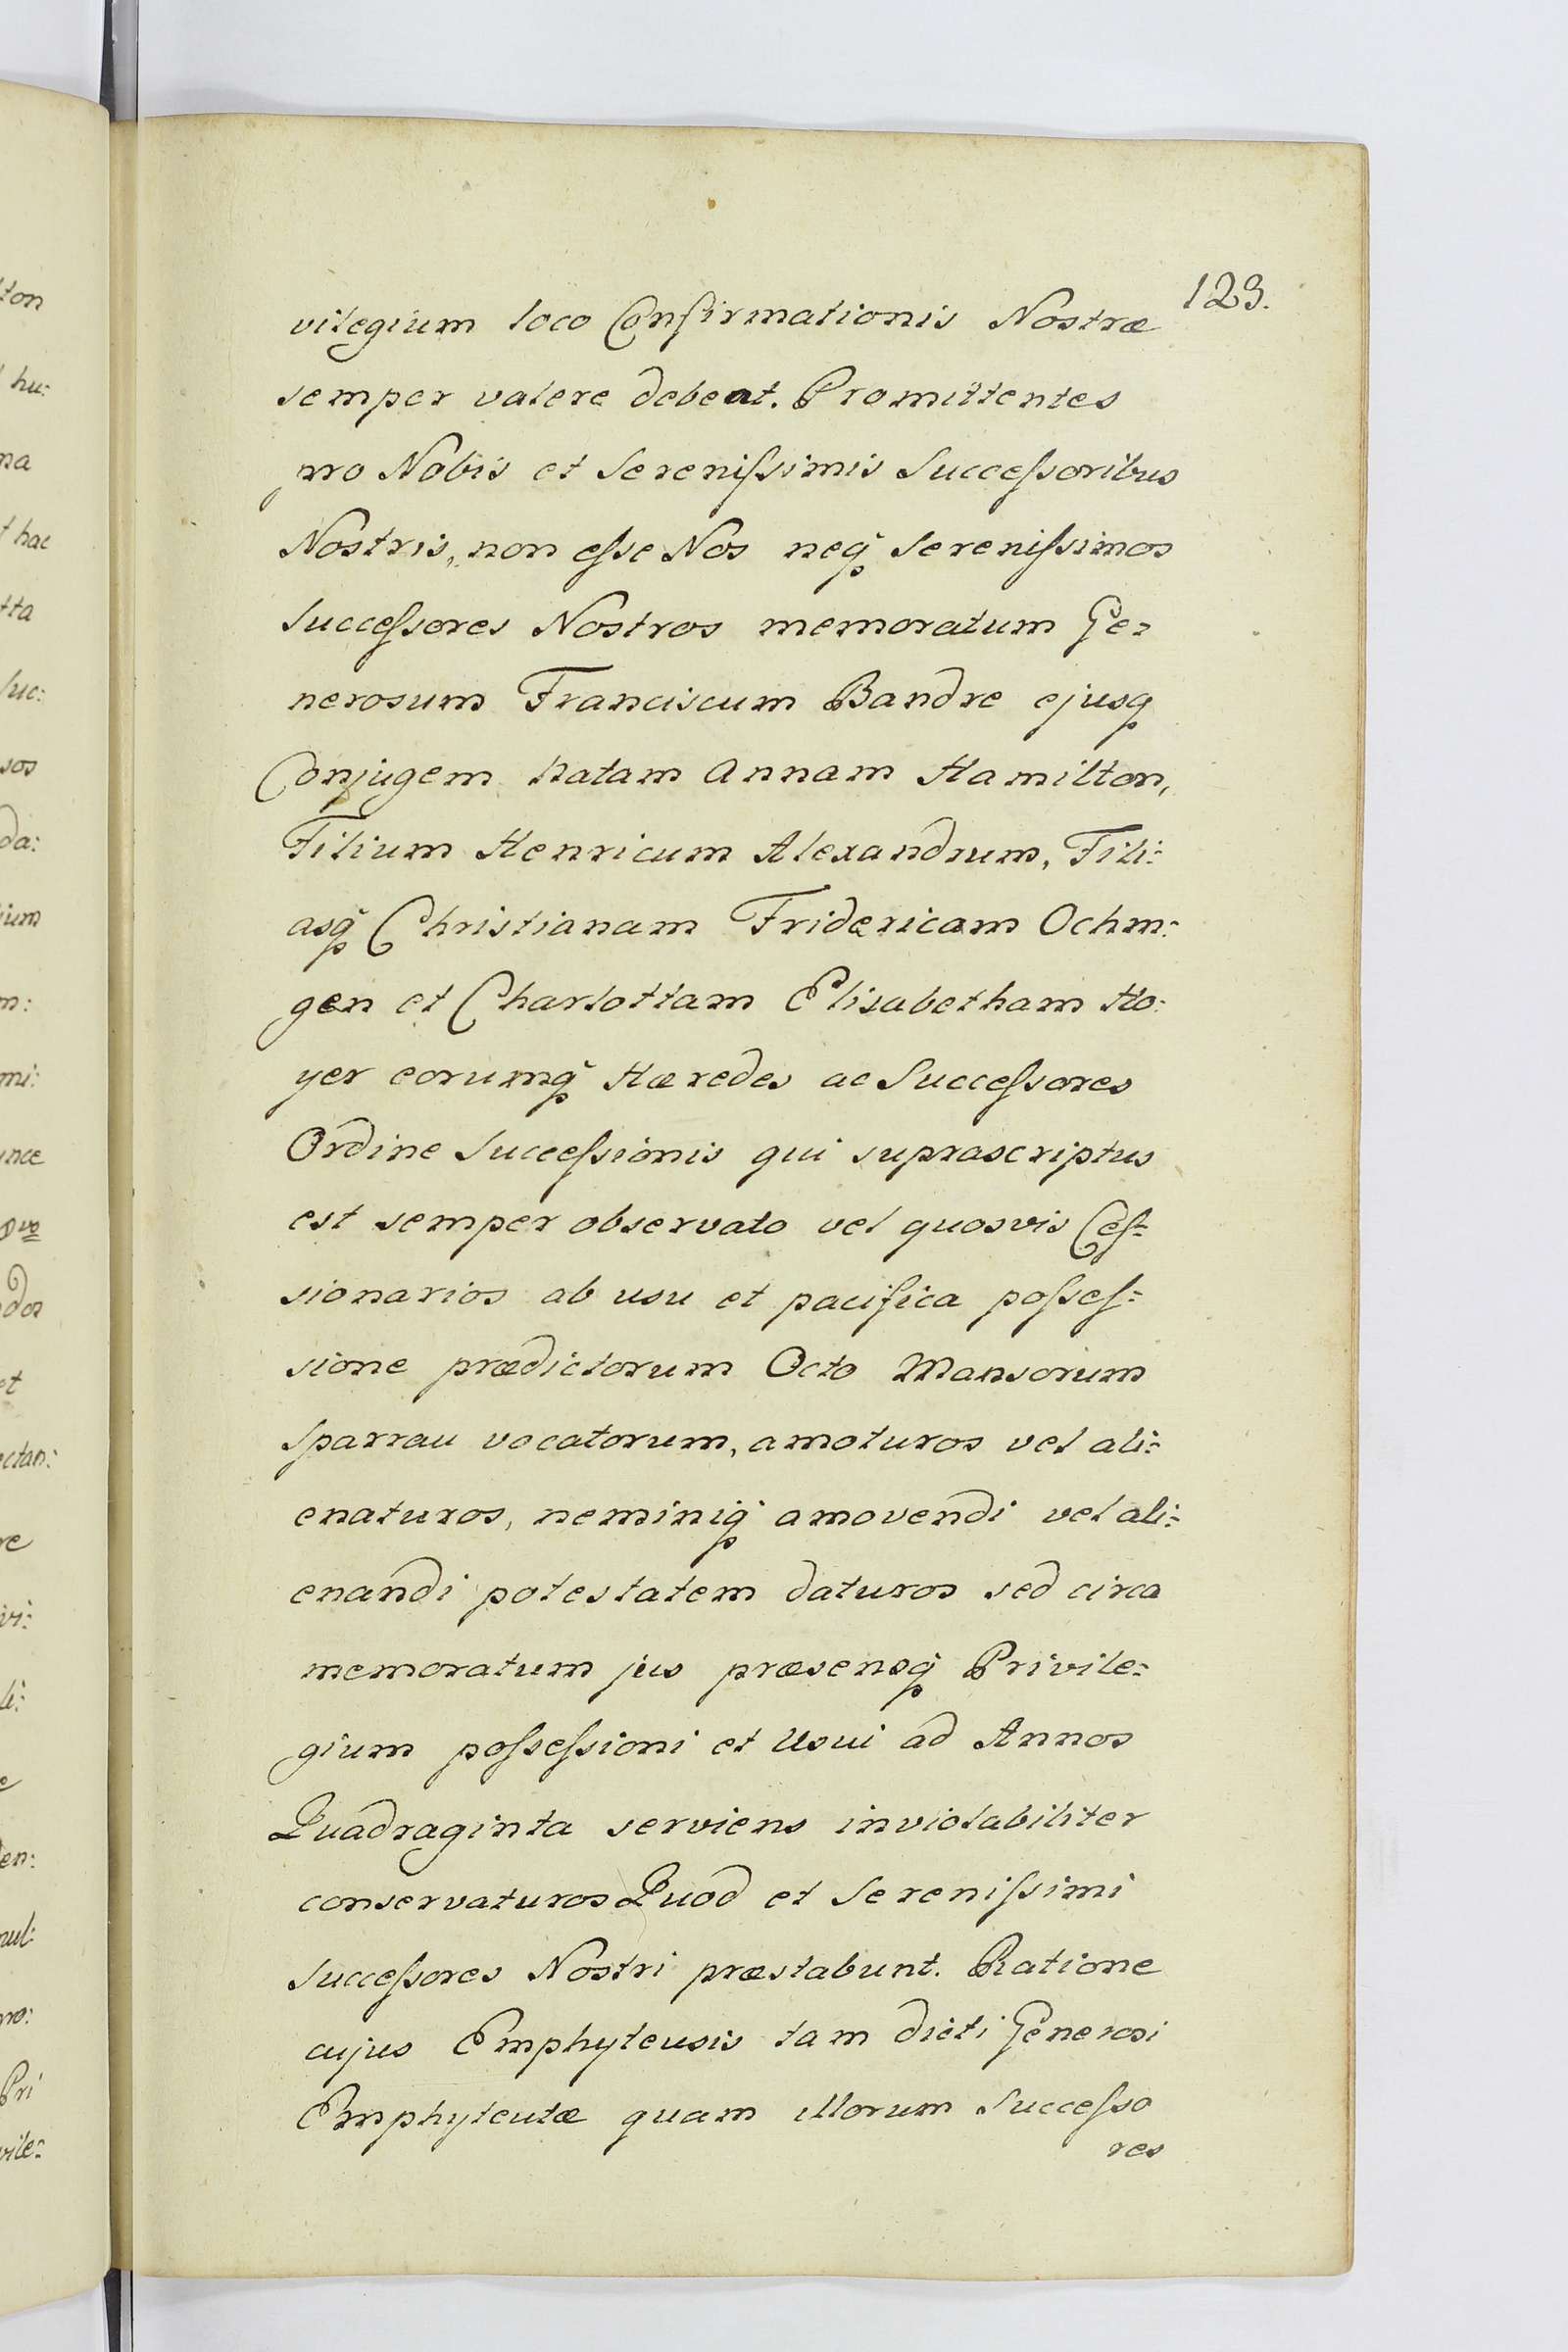 123.
vilegium loco Confirmationis Nostræ
semper valere debeat. Promittentes
pro Nobis et Sereniſsimis Succeſsoribus
Nostris, non eſse Nos neq̃ Sereniſsimos
Succeſsores Nostros memoratum Ge=
nerosum Franciscum Bandre ejusq
Conjugem Natam Annam Hamilton,
Filium Henricum Alexandrum, Fili=
asq̃ Christianam Fridericam Ochm=
gen et Charlottam Elisabetham Ho=
yer eorumq̃ Hæredes ac Succeſsores
Ordine Succeſsionis qui suprascriptus
est semper observato vel quosvis Ceſ=
sionarios ab usu et pacifica poſseſ=
sione prædictorum Octo Mansorum
Sparrau vocatorum, amoturos vel ali=
enaturos, neminiq̃ amovendi vel ali=
enandi potestatem daturos sed circa
memoratum jus præsensq̃ Privile=
gium poſseſsioni et Usui ad Annos
Quadraginta serviens inviolabiliter
conservaturos Quod et Sereniſsimi
Succeſsores Nostri præstabunt. Ratione
cujus Emphyteusis tam dicti Generosi
Emphyteutæ quam illorum Succeſso
res